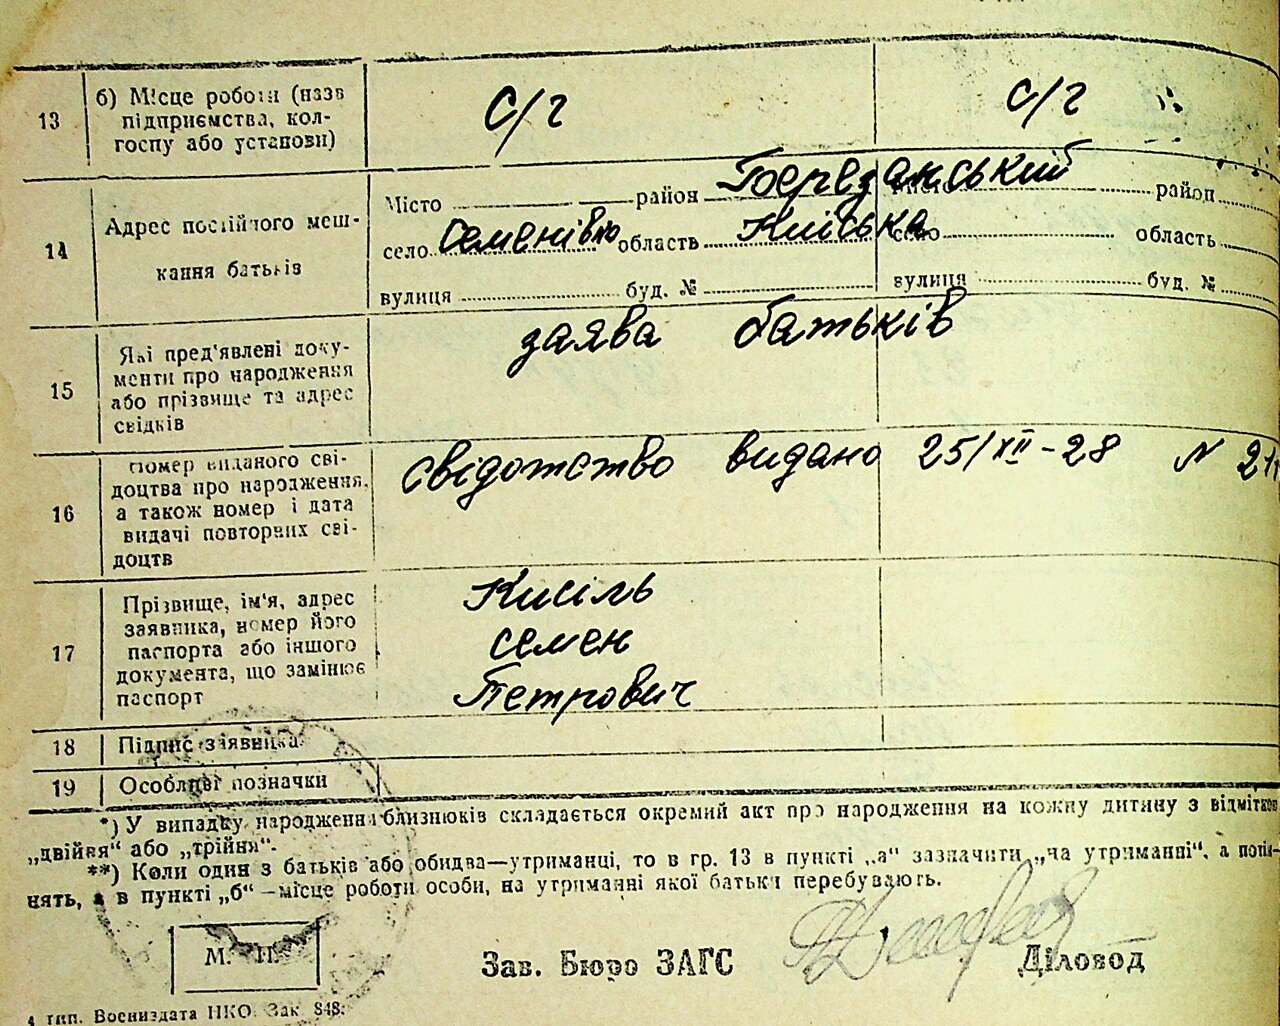 13 б) Місце роботи (назв С/г С/г
підприємства, кол-
госпу або установи)
Місто район Березанський район
14 Адрес постійного меш- село Семенівка область Київська село область
кання батьків
вулиця буд. № вулиця буд. №
заява батьків
Які пред'явлені доку-
15 менти про народження
або прізвище та адрес
свідків
Номер виданого сві- свідотство видано 25/XII-28 N
доцтва про народження,
16 а також номер і дата
видачі повторних сві-
доцтв
Прізвище, ім'я, адрес Кисіль
заявника, номер його семен
17 паспорта або іншого Петрович
документа, що замінює
паспорт
18 Підпис заявника
19 Особливі позначки
*) У випадку народження близнюків складається окремий акт про народження на кожну дитину з відміткою
„двійня“ або „трійня“.
**) Коли один з батьків або обидва—утриманці, то в гр. 13 в пункті „а“ зазначити „на утриманні“, а потім-
нять, а в пункті „б“ —місце роботи особи, на утриманні якої батьки перебувають.
М. П. Зав. Бюро ЗАГС Діловод
4 тип. Воениздата НКО. Зак. 848.